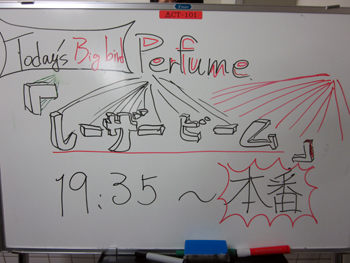 ACT-101
Today's Big bird
Perfume
「レーザービーム」
19:35 ～ 本番